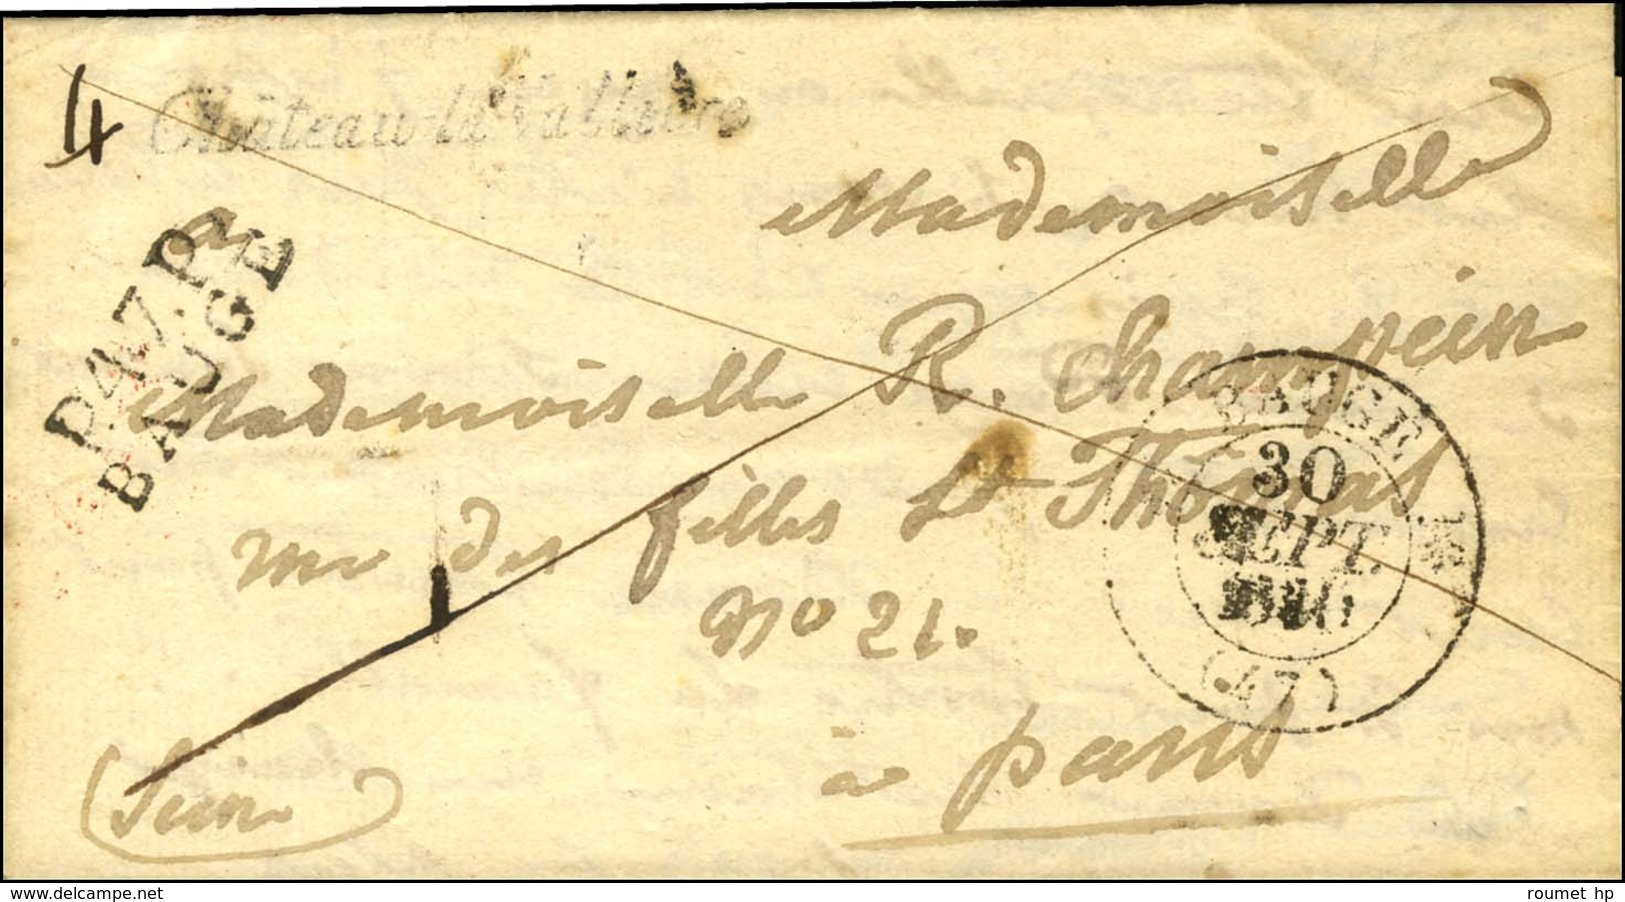 4
Château-la-Vallière
P.47.P.
BAUGÉ
a
Mademoiselle
Mademoiselle R. Champein
rue des filles St Thomas
No 21.
à paris
(Seine)
BAUGÉ
30
SEPT.
(47)
www.delcampe.net
roumet hp